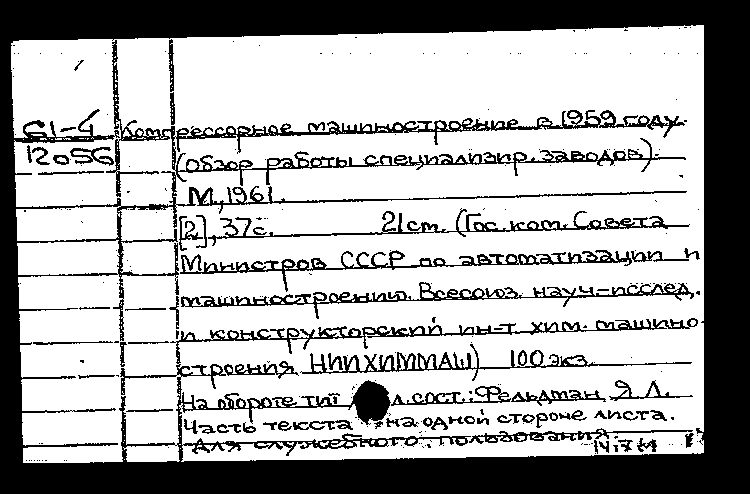 61-4 Компрессорное машиностроение в 1959 году
12056 (обзор работы специализир. заводов).
М., 1961.
[2], 37с. 21см. (Гос. ком. Совета
Министров СССР по автоматизации и
машиностроению. Всесоюз. науч-исслед.
и конструкторский ин-т хим. машино-
строения НИИХИММАШ) 100 экз.
На обороте тит л. сост.: Фельдман Я Л.
Часть текста на одной стороне листа.
Для служебного пользования